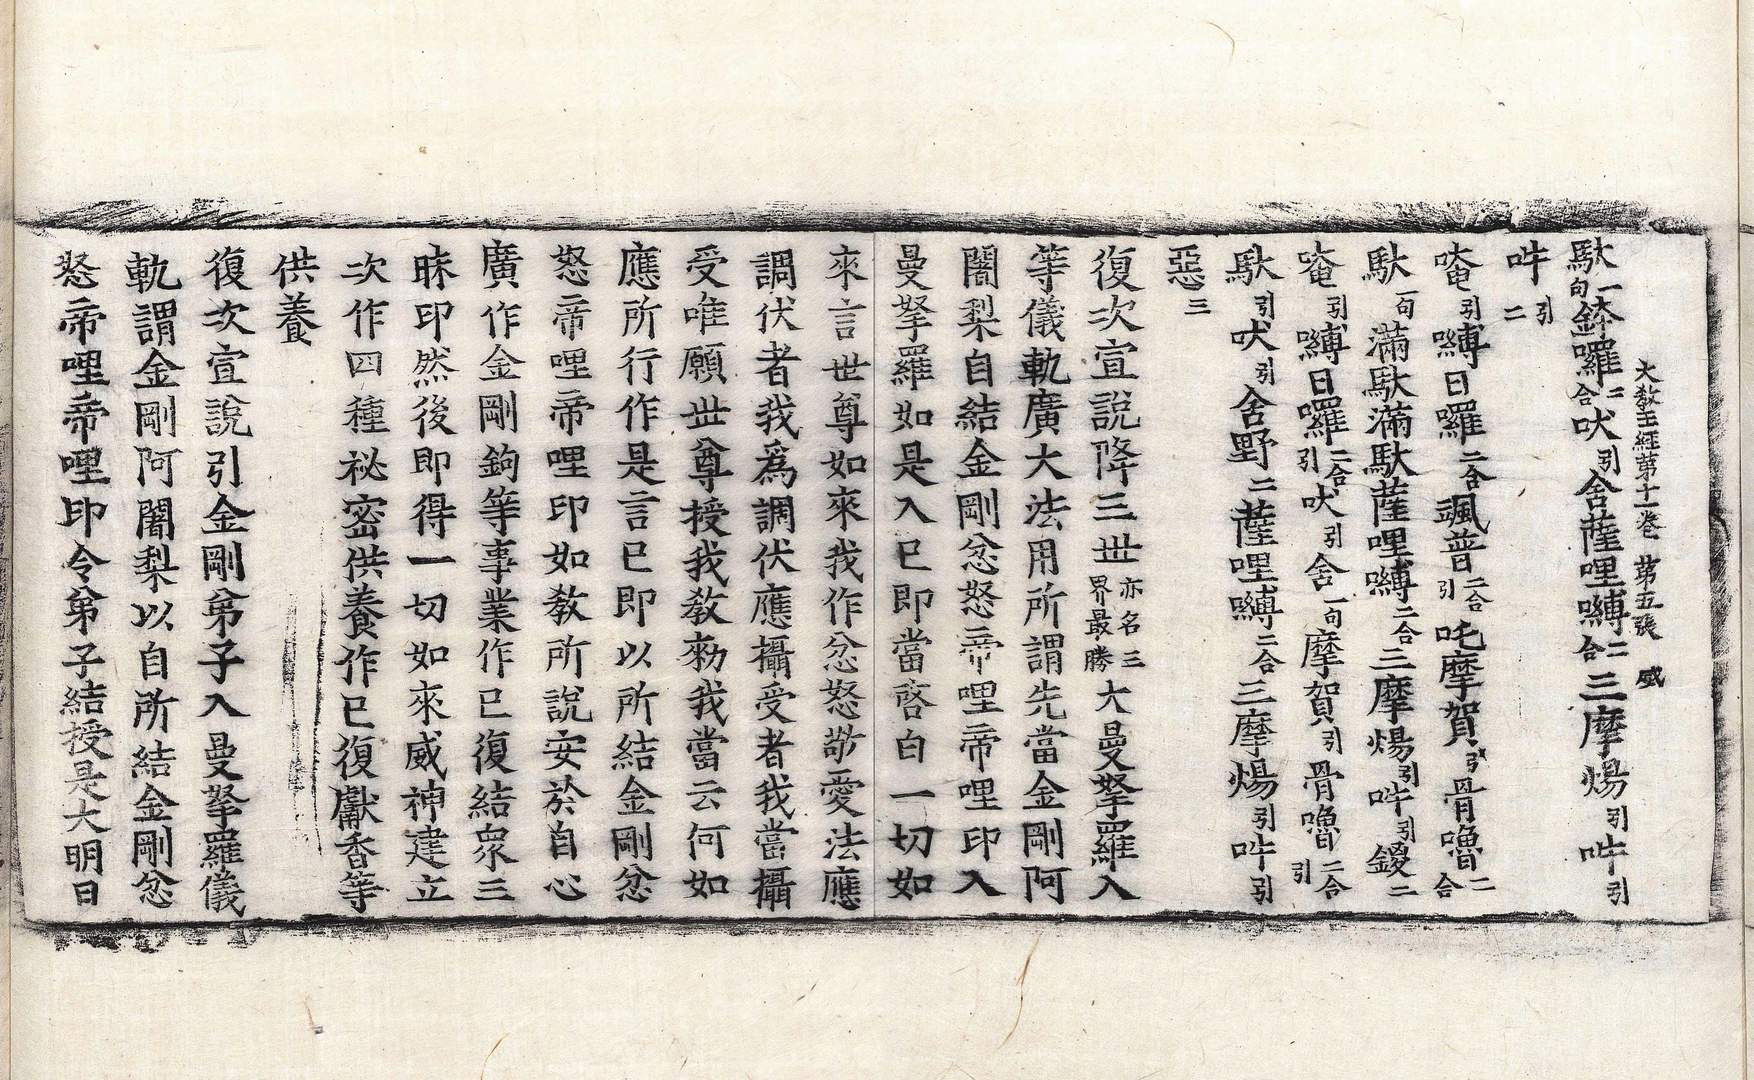 馱一句鉢囉二合吠引舍薩哩嚩二合三摩煬引吽引
大教王經第十一卷 第五張 盛
吽引二
唵引嚩日囉二合颯普二合引吒摩賀引骨嚕二合
馱一句滿馱滿馱薩哩嚩二合三摩煬引吽引鑁二
唵引嚩日囉二合引吠引舍一句摩賀引骨嚕二合引
馱引吠引舍野二薩哩嚩二合三摩煬引吽引
惡三
復次宣說降三世亦名三界最勝大曼拏羅入
等儀軌廣大法用所謂先當金剛阿
闍梨自結金剛忿怒帝哩帝哩印入
曼拏羅如是入已即當啓白一切如
來言世尊如來我作忿怒敬愛法應
調伏者我爲調伏應攝受者我當攝
受唯願世尊授我教勑我當云何如
應所行作是言已即以所結金剛忿
怒帝哩帝哩印如教所說安於自心
廣作金剛鉤等事業作已復結衆三
昧印然後即得一切如來威神建立
次作四種祕密供養作已復獻香等
供養
復次宣說引金剛弟子入曼拏羅儀
軌謂金剛阿闍梨以自所結金剛忿
怒帝哩帝哩印令弟子結授是大明曰